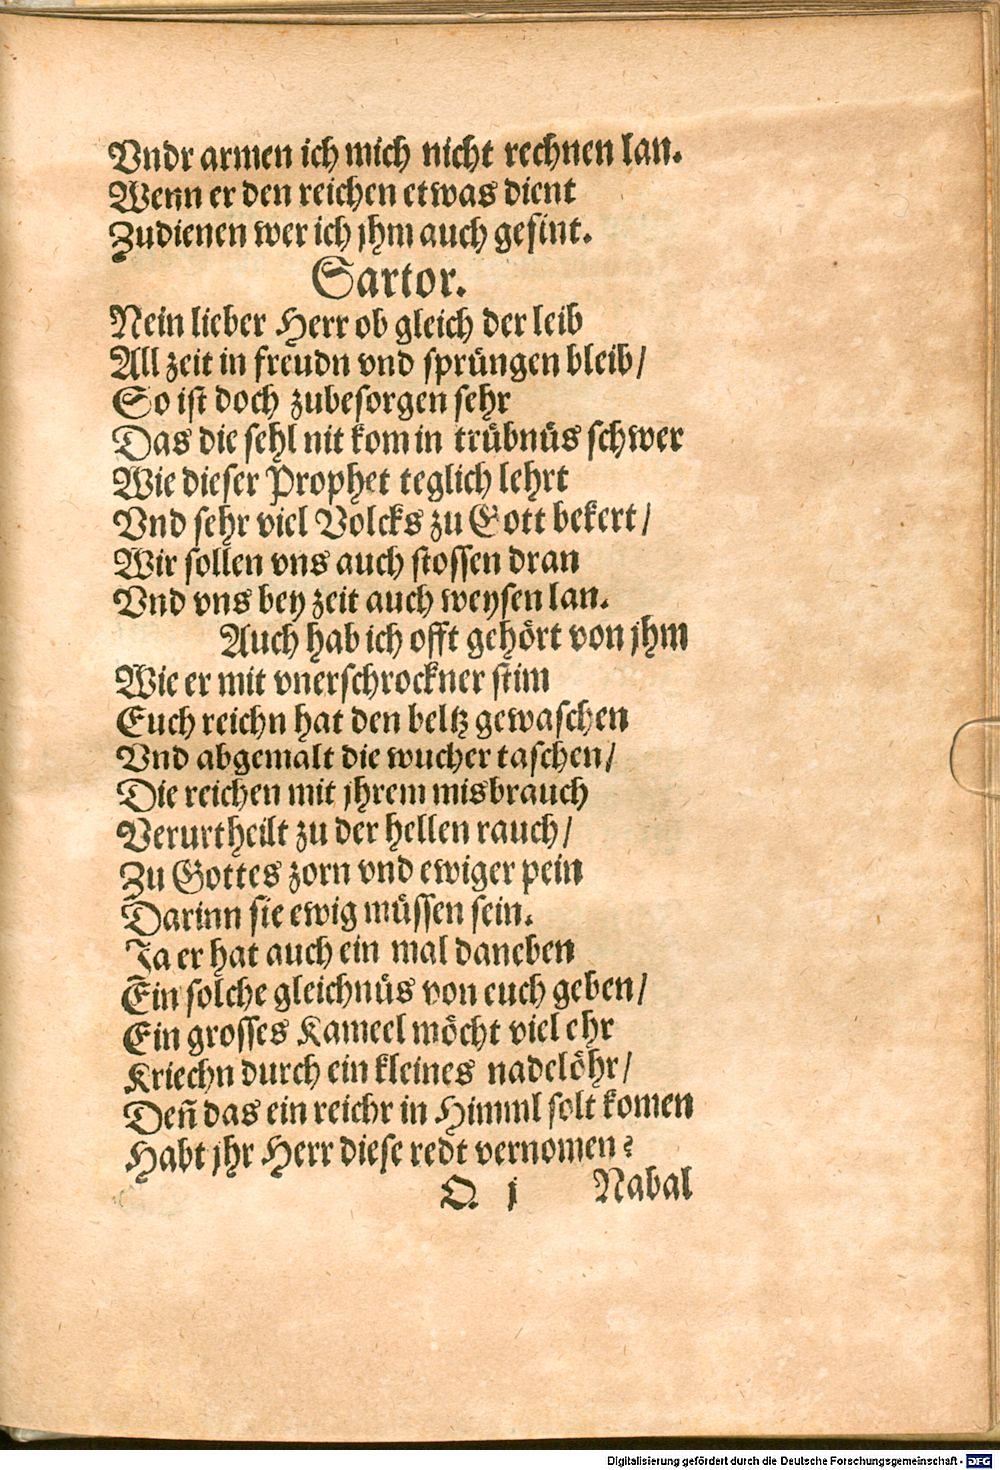 Vndr armen ich mich nicht rechnen lan.
Wenn er den reichen etwas dient
Zudienen wer ich jhm auch gesint.
Sartor.
Nein lieber Herr ob gleich der leib
All zeit in freudn vnd sprüngen bleib/
So ist doch zubesorgen sehr
Das die sehl nit kom in trübnüs schwer
Wie dieser Prophet teglich lehrt
Vnd sehr viel Volcks zu Gott bekert/
Wir sollen vns auch stossen dran
Vnd vns bey zeit auch weysen lan.
Auch hab ich offt gehört von jhm
Wie er mit vnerschrockner stim
Euch reichn hat den beltz gewaschen
Vnd abgemalt die wucher taschen/
Die reichen mit jhrem misbrauch
Verurtheilt zu der hellen rauch/
Zu Gottes zorn vnd ewiger pein
Darinn sie ewig müssen sein.
Ja er hat auch ein mal daneben
Ein solche gleichnüs von euch geben/
Ein grosses Kameel möcht viel ehr
Kriechn durch ein kleines nadelöhr/
Deñ das ein reichr in Himml solt komen
Habt jhr Herr diese redt vernomen?
O j Nabal
Digitalisierung gefördert durch die Deutsche Forschungsgemeinschaft - DFG